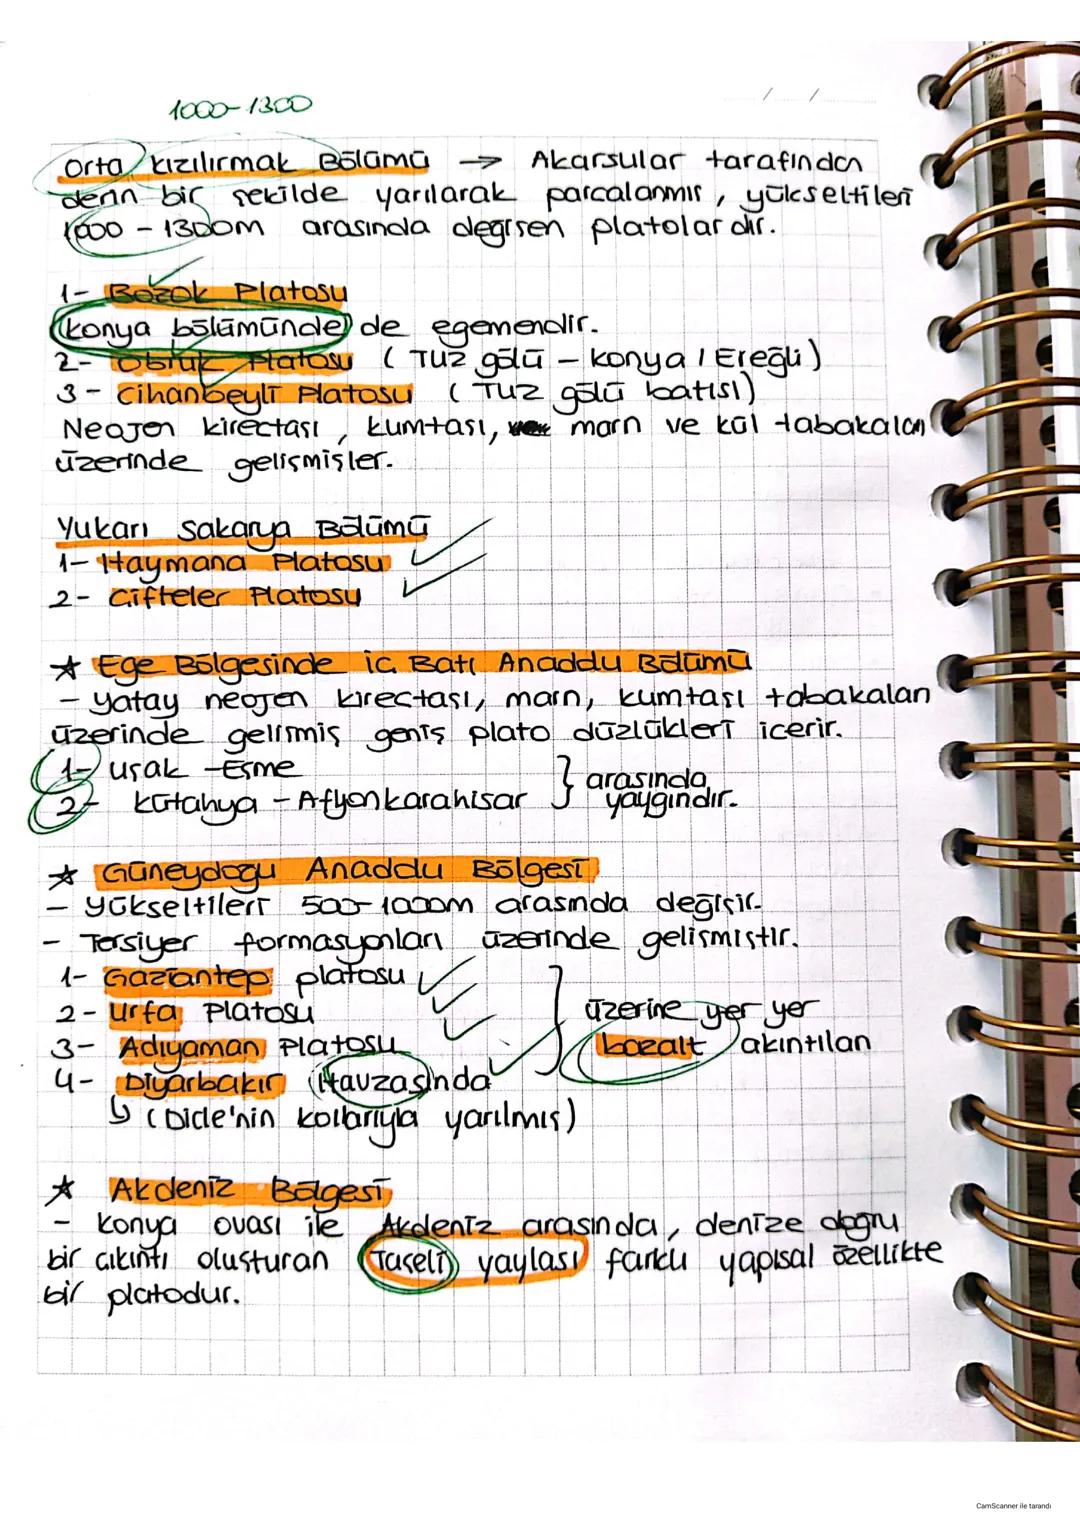 1000-1300
/ /
Orta Kızılırmak Bölümü → Akarsular tarafından
derin bir şekilde yarılarak parcalanmıs, yükseltileri
1000 - 1300m arasında değişen platolardır.
1- Bozok Platosu
Konya bölümünde de egemendir.
2- Obruk Platosu ( Tuz gölü - Konya / Ereğli )
3- Cihanbeyli Platosu ( Tuz gölü batısı)
Neojen kirectası, kumtası, marn ve kül tabakaları
üzerinde gelişmişler.
Yukarı Sakarya Bölümü
1- Haymana Platosu
2- Çifteler Platosu
★ Ege Bölgesinde ic Batı Anadolu Bölümü
- yatay neojen kirectası, marn, kumtası tabakaları
üzerinde gelismiş geniş plato düzlükleri icerir.
1- uşak - Eşme
2- Kütahya - Afyonkarahisar } arasında yaygındır.
★ Güneydogu Anadolu Bölgesi
- Yükseltileri 500-1000m arasında değişir.
- Tersiyer formasyonları üzerinde gelişmiştir.
1- Gaziantep platosu
2- Urfa Platosu
3- Adıyaman Platosu
4- Diyarbakır Havzasında } üzerine yer yer bazalt akıntıları
↳ (Dicle'nin kollarıyla yarılmış)
★ Akdeniz Bölgesi
- Konya ovası ile Akdeniz arasında, denize doğru
bir çıkıntı oluşturan Taşeli yaylası farklı yapısal özellikte
bir platodur.
CamScanner ile tarandı